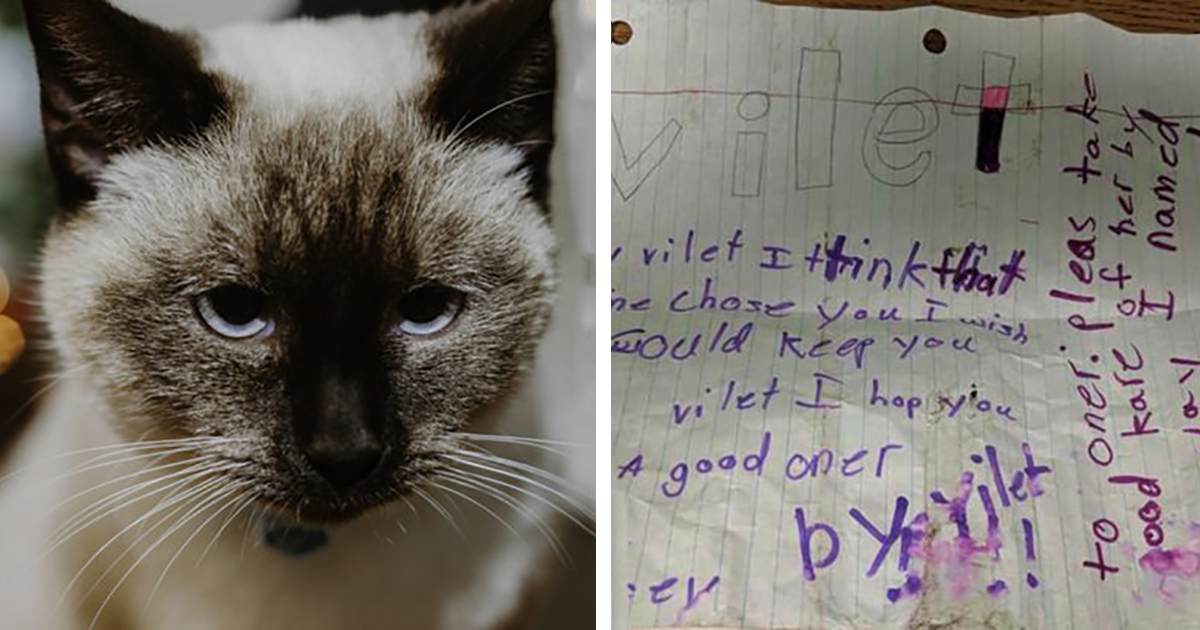 vilet
vilet I think that
chose you I wish
would keep you
vilet I hop you
A good oner
by vilet!
to oner: pleas take
ood kare of her by
I named